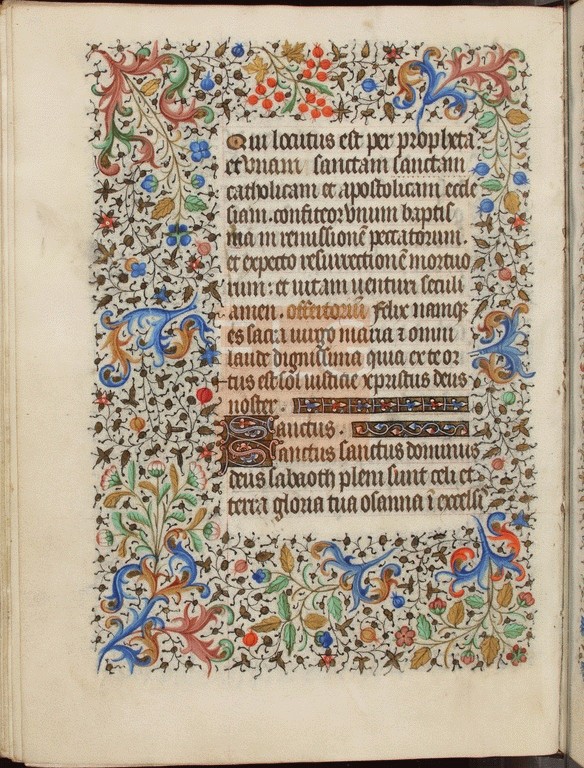 Qui locutus est per propheta
et vnam sanctam sanctam
catholicam et apostolicam eccle
siam. confiteor vnum baptis
ma in remissionē peccatorum.
et expecto resurrectionē mortuo
rum: et uitam uenturi seculi
amen. offertoriū Felix namqꝫ
es sacra uirgo maria ⁊ omni
laude dignissima quia ex te or
tus est sol iusticie xpristus deus
noster.
Sanctus.
Sanctus sanctus dominus
deus sabaoth pleni sunt celi et
terra gloria tua osanna ī excelsi